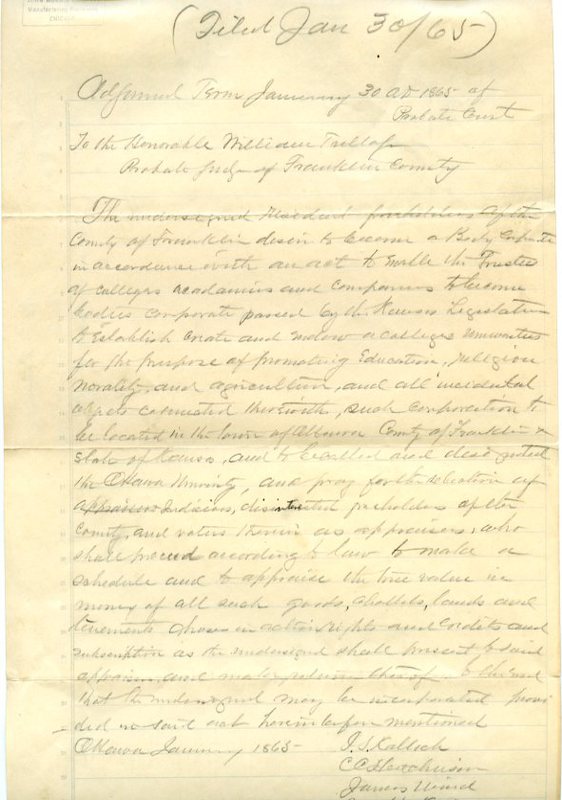 (Filed Jan 30/65)
Adjourned Term January 30 AD 1865 of
Probate Court
To the Honorable William
Probate Judge of Franklin County
The undersigned Resident freeholders of the
County of Franklin desire to become a Body Corporate
in accordance with an act to enable the Trustees
of colleges academies and companies to become
bodies corporate passed by the Kansas Legislature
to Establish create and endow a colleges universities
for the purpose of promoting Education, religion
morality, and agriculture, and all incidental
objects connected therewith, such corporation to
be located in the town of Ottawa County of Franklin &
State of Kansas, and to be called and designated
the Ottawa University, and pray for the selection of
judicious, disinterested freeholders of the
County, and voters therein as appraisers, who
shall proceed according to law to make a
schedule and to appraise the true value in
money of all such goods, chattels, lands and
tenements choses in action rights and credits and
subscription as the undersigned shall present to said
and make return thereof to the end
that the undersigned may be incorporated provi
ded in said act hereinbefore mentioned
Ottawa January 1865
I. S. Kalloch
C C Hutchinson
James Wind